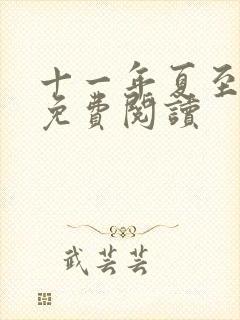 十一年夏至
免費閱讀
武芸芸